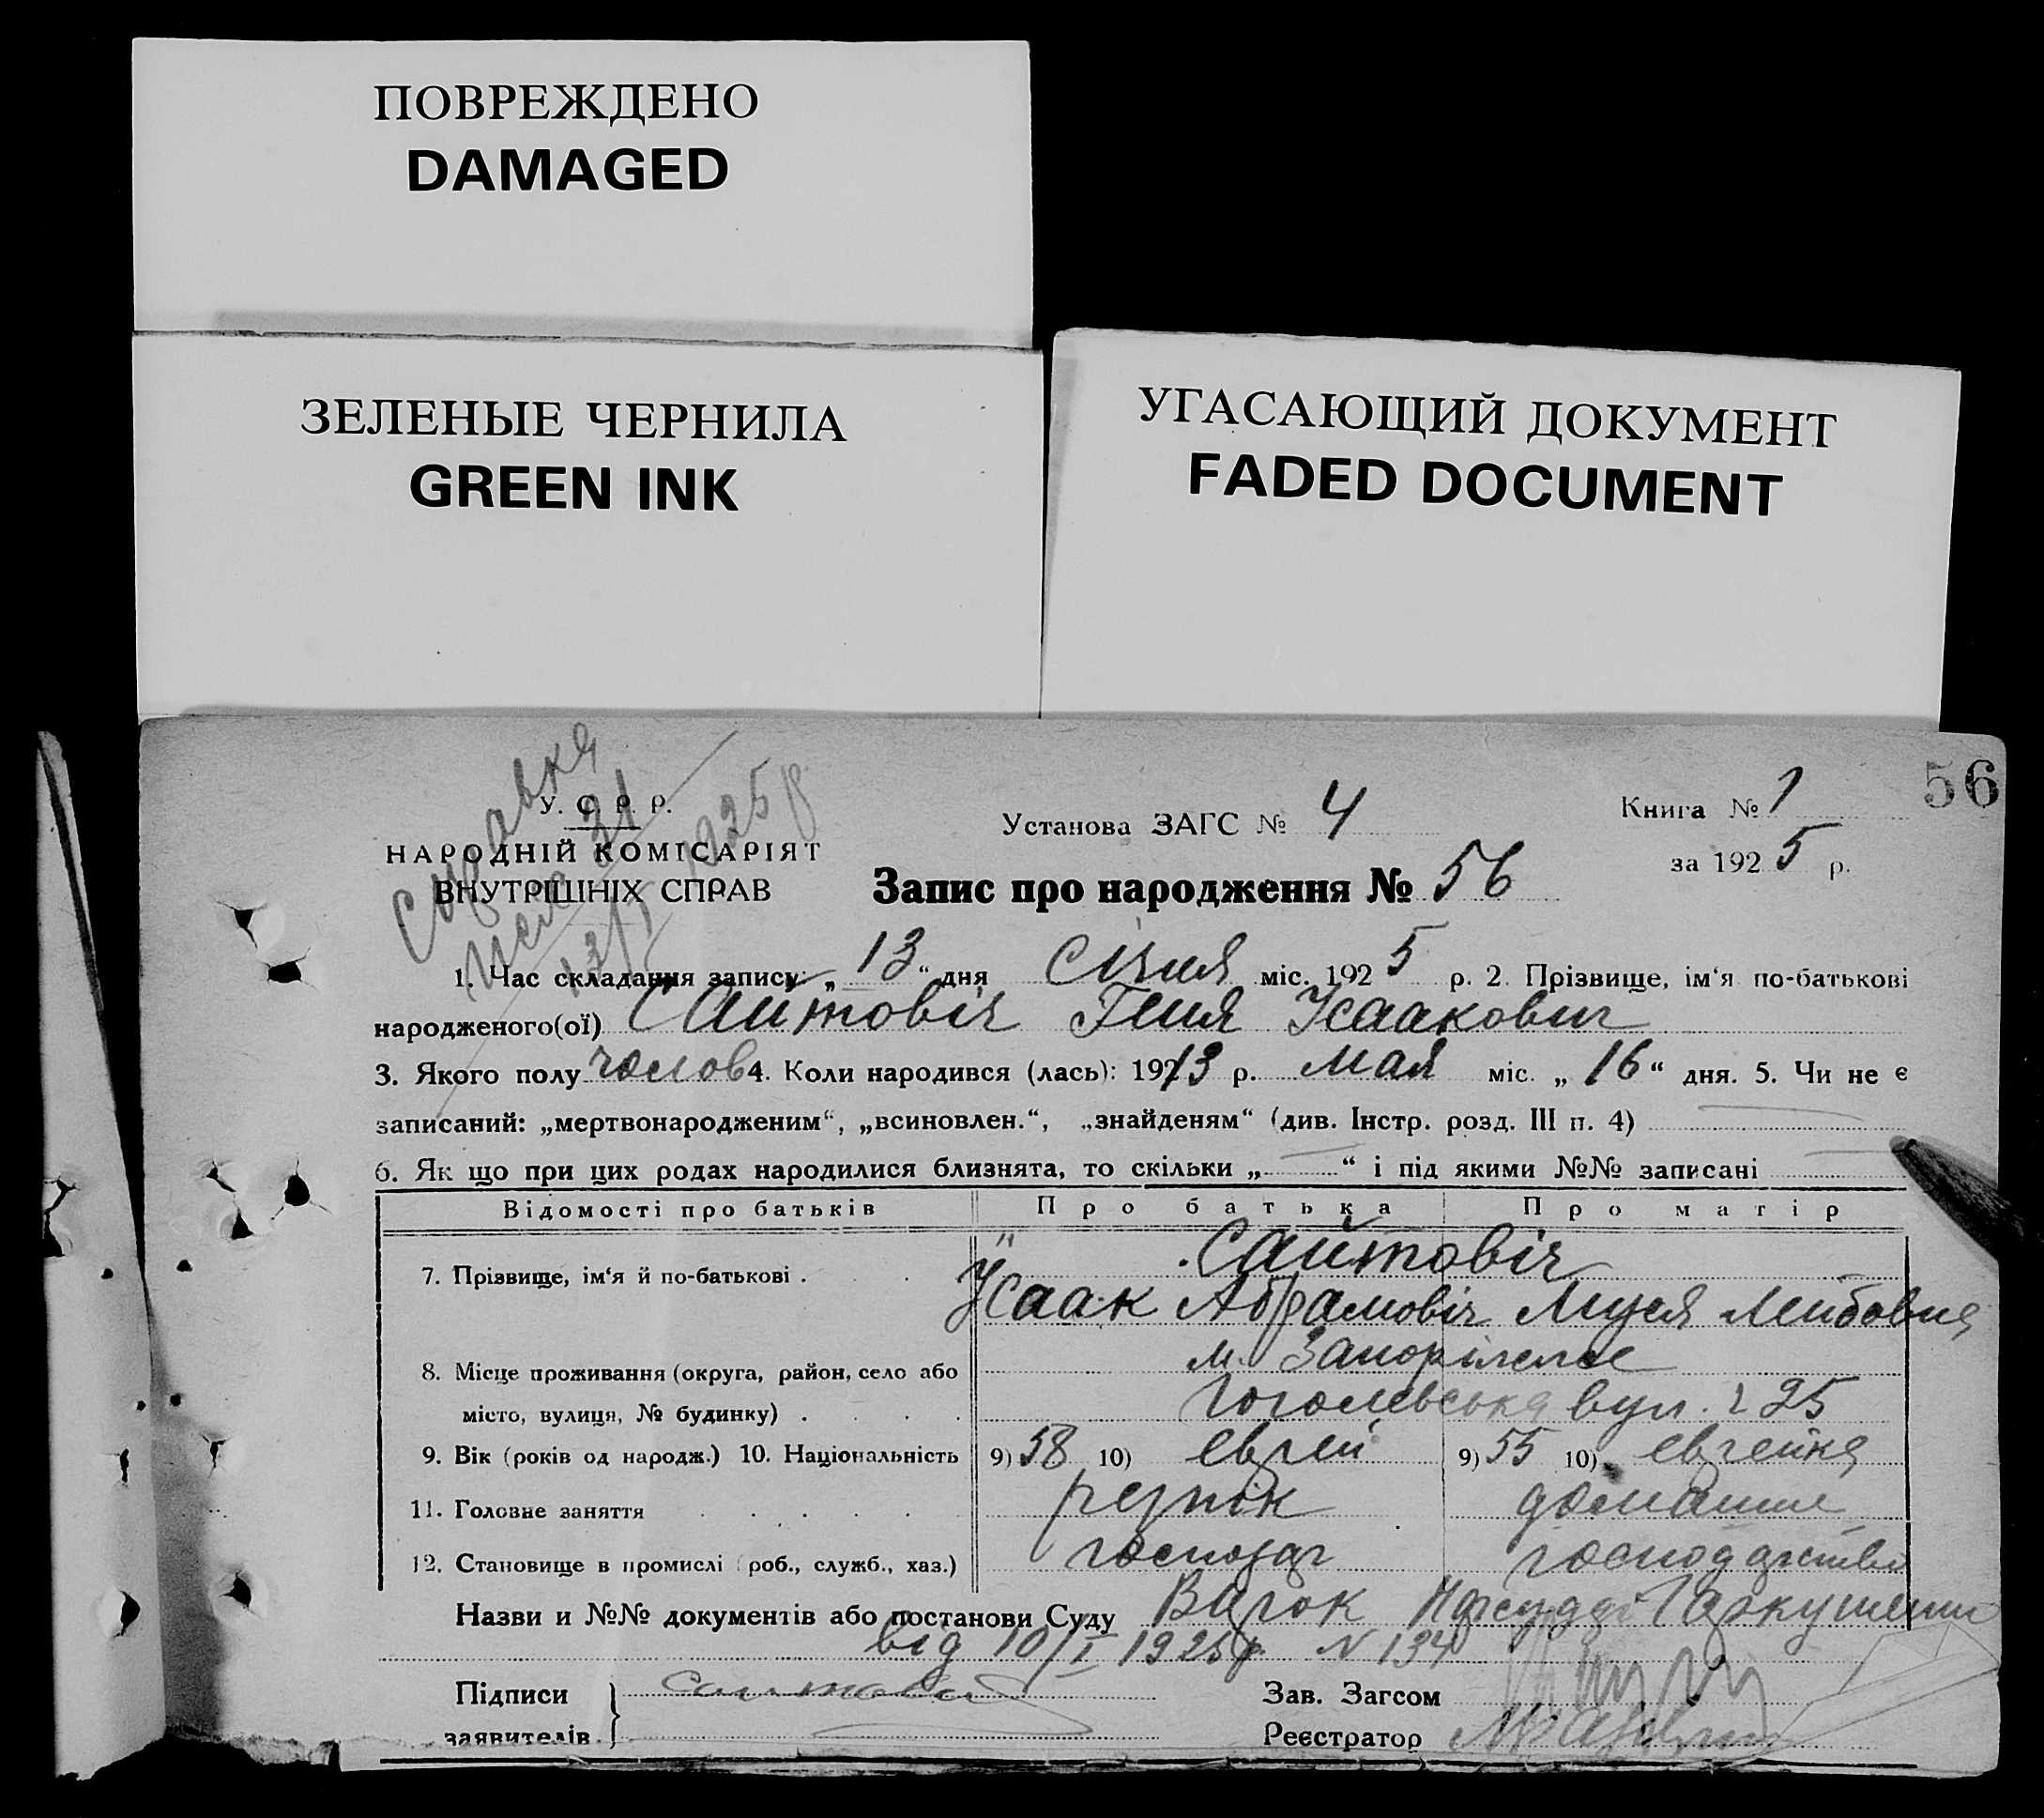 ПОВРЕЖДЕНО
DAMAGED
ЗЕЛЕНЫЕ ЧЕРНИЛА
GREEN INK
УГАСАЮЩИЙ ДОКУМЕНТ
FADED DOCUMENT
56
Справка
21
13/I 1925 р
У. С. Р. Р.
НАРОДНІЙ КОМІСАРІЯТ
ВНУТРІШНІХ СПРАВ
Установа ЗАГС № 4
Книга № 1
за 1925 р.
Запис про народження № 56
1. Час складання запису: „ 13 “ дня Січня міс. 1925 р. 2. Прізвище, ім‘я по-батькові
народженого(ої) Сайтовіч Геня Исаакович
3. Якого полу чолов 4. Коли народився (лась): 1913 р. Мая міс. „ 16 “ дня. 5. Чи не є
записаний: „мертвонародженим“, „всиновлен.“, „знайденям“ (див. Інстр. розд. III п. 4)
6. Як що при цих родах народилися близнята, то скільки „ — “ і під якими №№ записані
Відомості про батьків Про батька Про матір
7. Прізвище, ім‘я й по-батькові . Сайтовіч
Исаак Абрамовіч Лейбовна
8. Місце проживання (округа, район, село або м. Запоріжжє
місто, вулиця, № будинку) . Гоголевська вул. 25
9. Вік (років од народж.) 10. Національність 9) 58 10) еврей 9) 55 10) еврейка
11. Головне заняття різнік домашнє
12. Становище в промислі (роб., служб., хаз.) господар господарство
Назви и №№ документів або постанови Суду Вирок Нарсудді
від 10/I 1925 р. N 134
Підписи Сайтович Зав. Загсом
заявителів Реєстратор